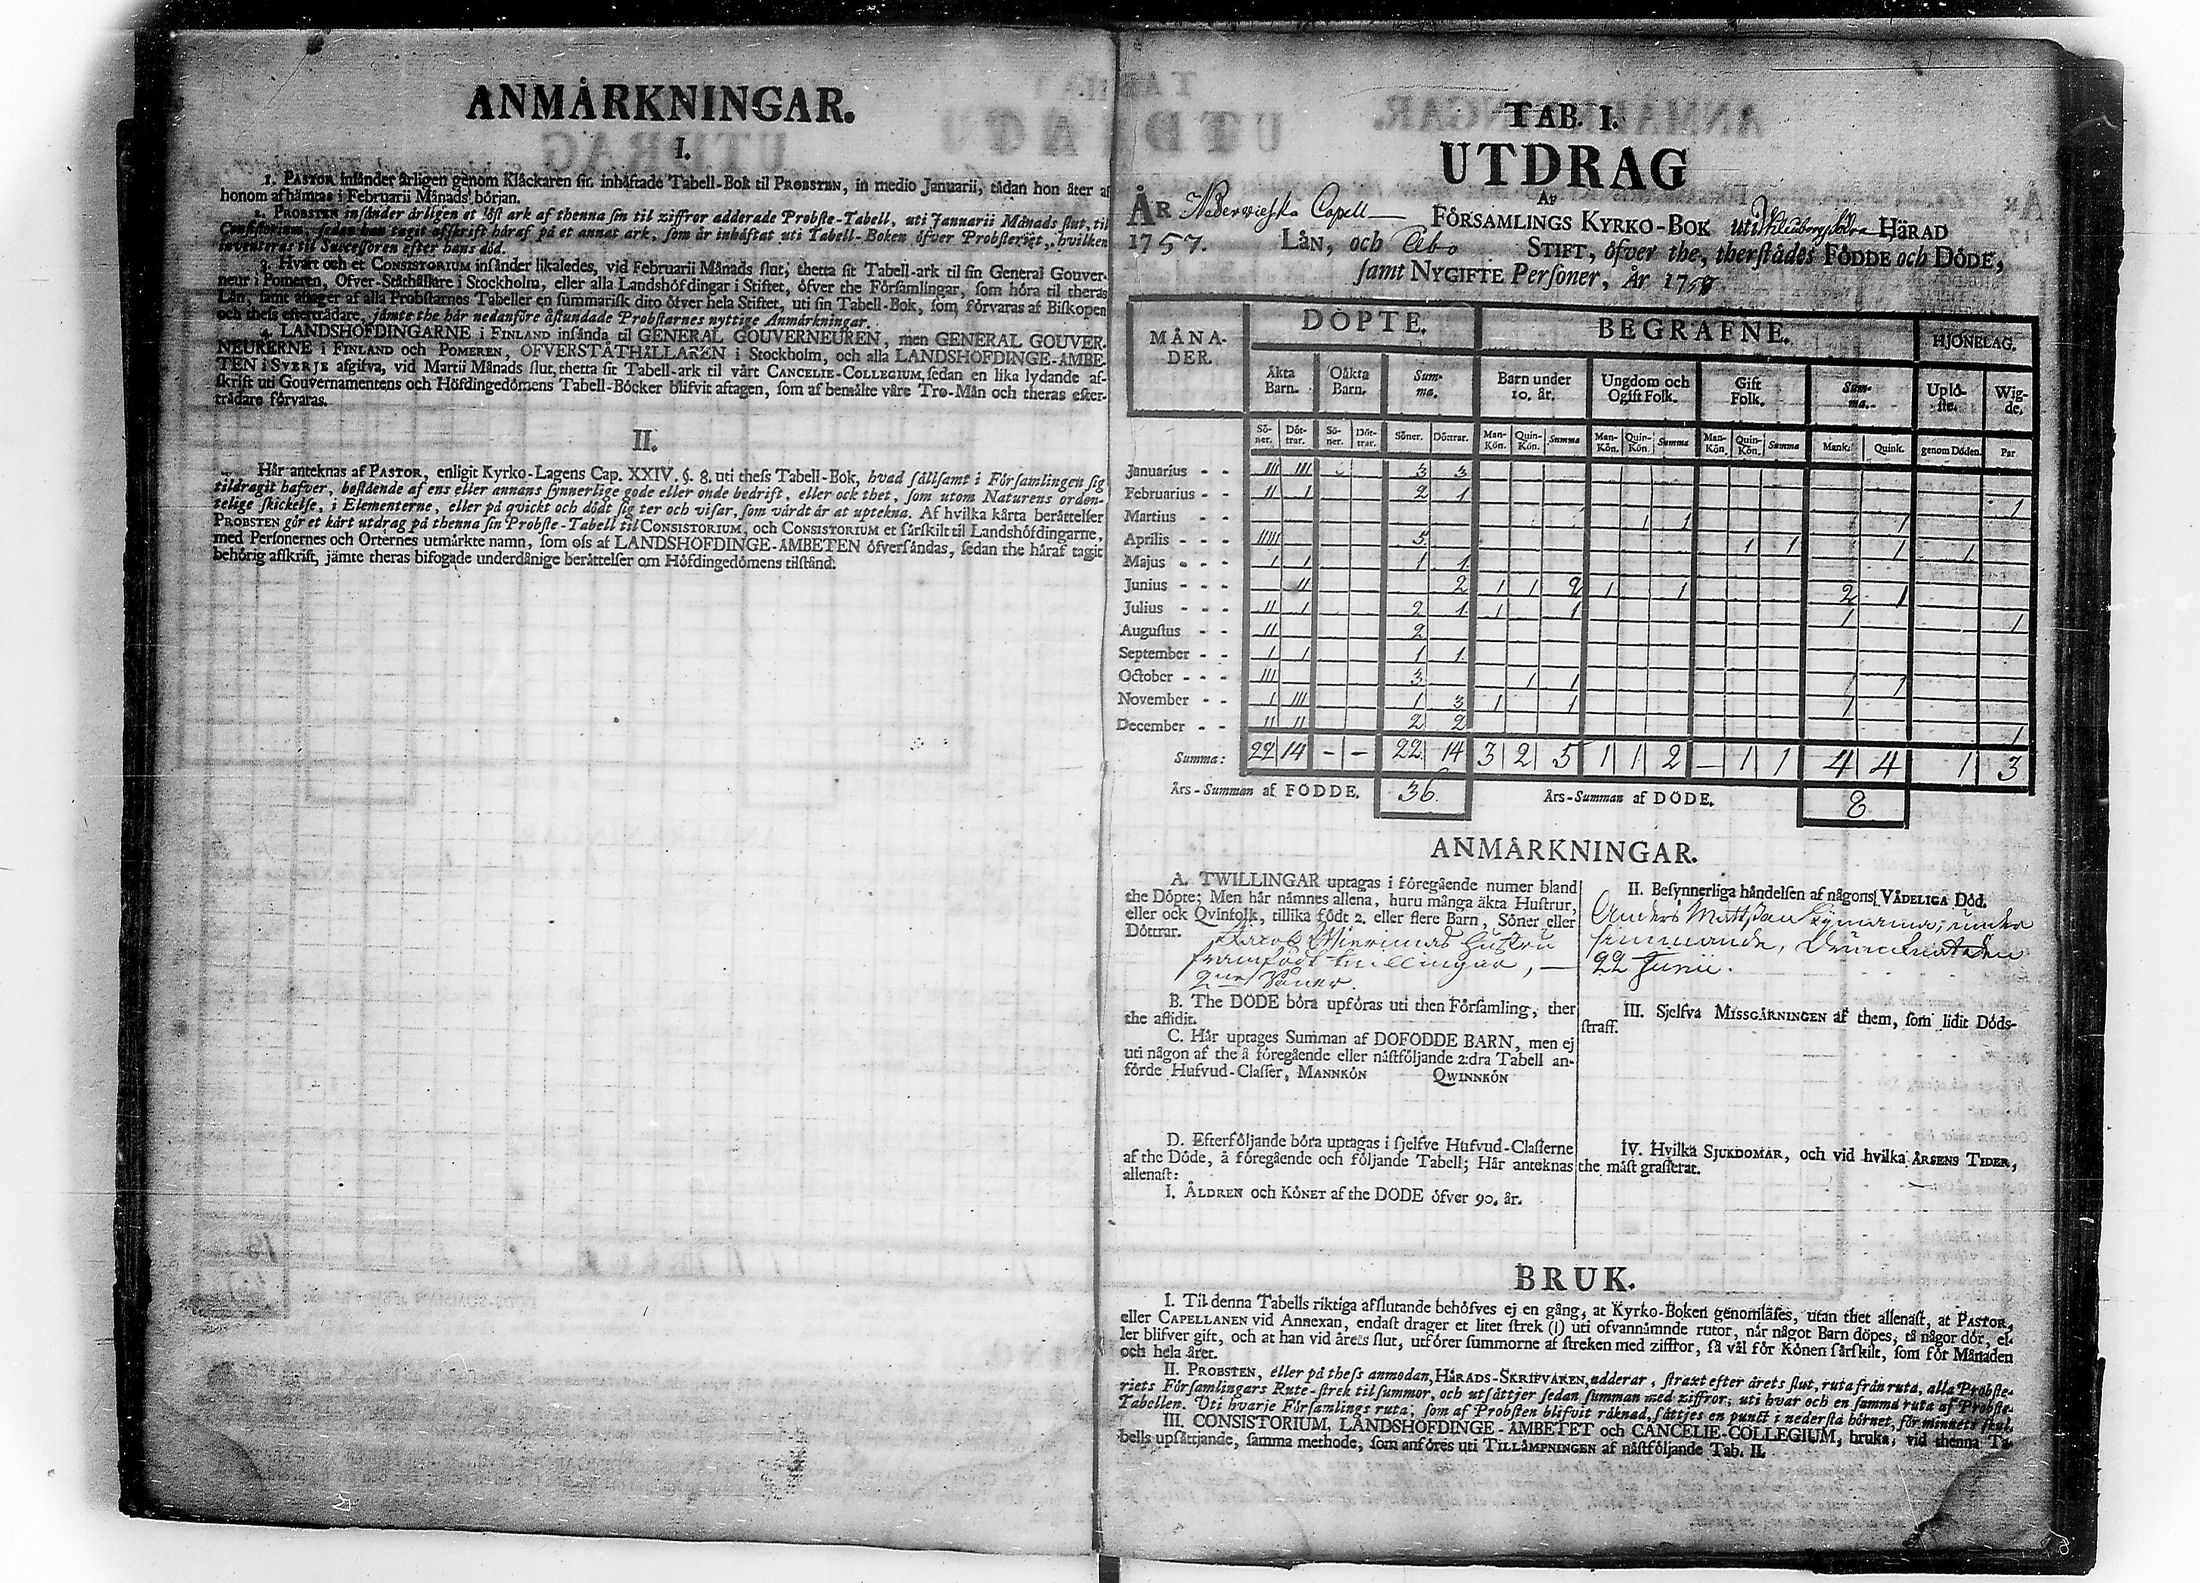 ANMÄRKNINGAR.
I.
1. PASTOR insänder årligen genom Klåckaren sin inhäftade Tabell-Bok til PROBSTEN, in medio Januarii, tådan hon åter af
honom afhämtas i Februarii Månads början.
2. PROBSTEN insänder årligen et löst ark af thenna sin til ziffror adderade Probste-Tabell, uti Januarii Månads slut, til
Consistorium, sedan han tagit afskrift häraf på et annat ark, som är inhäftat uti Tabell-Boken öfver Probsteriet, hvilken
inventeras til Successoren efter hans död.
3. Hvart och et CONSISTORIUM insänder likaledes, vid Februarii Månads slut, thetta sit Tabell-ark til sin General Gouver-
neur i Pomeren, Öfver-Ståthållare i Stockholm, eller alla Landshöfdingar i Stiftet, öfver the Församlingar, som höra til theras
Län, samt aftager af alla Probstarnes Tabeller en summarisk dito öfver hela Stiftet, uti sin Tabell-Bok, som förvaras af Biskopen
och thess efterträdare, jämte the här nedanföre åstundade Probstarnes nyttige Anmärkningar.
4. LANDSHÖFDINGARNE i FINLAND insända til GENERAL GOUVERNEUREN, men GENERAL GOUVER-
NEURERNE i FINLAND och POMEREN, ÖFVERSTÅTHÅLLAREN i Stockholm, och alla LANDSHÖFDINGE-ÄMBE-
TEN i SVERJE afgifva, vid Martii Månads slut, thetta sit Tabell-ark til vårt CANCELIE-COLLEGIUM, sedan en lika lydande af-
skrift uti Gouvernamentens och Höfdingedömens Tabell-Böcker blifvit aftagen, som af bemälte våre Tro-Män och theras efter-
trädare förvaras.
II.
Här anteknas af PASTOR, enligit Kyrko-Lagens Cap. XXIV. §. 8. uti thess Tabell-Bok, hvad sällsamt i Församlingen sig
tildragit hafver, bestående af ens eller annans synnerlige gode eller onde bedrift, eller ock thet, som utom Naturens orden-
telige skickelse, i Elementerne, eller på qvickt och dödt sig ter och visar, som värdt är at uptekna. Af hvilka korta berättelser
PROBSTEN gör et kårt utdrag på thenna sin Probste-Tabell til CONSISTORIUM, och CONSISTORIUM et särskilt til Landshöfdingarne,
med Personernes och Orternes utmärkte namn, som oss af LANDSHÖFDINGE-ÄMBETEN öfversändas, sedan the häraf tagit
behörig afskrift, jämte theras bifogade underdånige berättelser om Höfdingedömens tilstånd.
TAB. I.
UTDRAG
AF
ÅR Capell FÖRSAMLINGS KYRKO-BOK uti HÄRAD
1757. LÄN, och Åbo STIFT, öfver the, therstädes FÖDDE och DÖDE,
samt NYGIFTE Personer, År 1757
MÅNA- DER. DÖPTE. BEGRAFNE. HJONELAG.
Äkta Barn. Oäkta Barn. Summa. Barn under 10. år. Ungdom och Ogift Folk. Gift Folk. Summa. Uplö- ste. Wig- de.
Sö- ner. Döt- trar. Sö- ner. Döt- trar. Söner. Döttrar. Man- Kön. Quin- Kön. Summa Man- Kön. Quin- Kön. Summa Man- Kön. Quin- Kön. Summa Mank. Quink. genom Döden. Par
Januarius - - III III 3 3
Februarius - - II I 2 1 1
Martius - - - 1 1 1
Aprilis - - - IIIII 5 1 1 1 1
Majus - - - I I 1 1
Junius - - - II 2 1 1 2 1 1 2 1
Julius - - - II I 2 1 1 1 1 1
Augustus - - II 2
September - - I I 1 1
October - - - III 3 1 1 1
November - - I III 1 3 1 1 1
December - - II II 2 2 1
Summa: 22 14 - - 22 14 3 2 5 1 1 2 - 1 1 4 4 1 3
Års-Summan af FÖDDE. 36 Års-Summan af DÖDE. 8
ANMÄRKNINGAR.
A. TWILLINGAR uptagas i föregående numer bland
the Döpte; Men här nämnes allena, huru många äkta Hustrur,
eller ock Qvinfolk, tillika födt 2. eller flere Barn, Söner eller
Döttrar. Jacob Hustru
framfödt twillingar, —
2ne Söner.
B. The DÖDE böra upföras uti then Församling, ther
the aflidit.
C. Här uptages Summan af DÖFÖDDE BARN, men ej
uti någon af the å föregående eller nästföljande 2:dra Tabell an-
förde Hufvud-Classer, MANNKÖN QWINNKÖN
D. Efterföljande böra uptagas i sjelfve Hufvud-Classerne
af the Döde, å föregående och följande Tabell; Här anteknas
allenast:
I. ÅLDREN och KÖNET af the DÖDE öfver 90. år.
II. Besynnerliga händelsen af någons VÅDELIGA Död.
Anders Mattson under
simmande,
22 Junii.
III. Sjelfva MISSGÄRNINGEN af them, som lidit Döds-
straff.
IV. Hvilka SJUKDOMAR, och vid hvilka ÅRSENS TIDER,
the mäst grasserat.
BRUK.
I. Til denna Tabells riktiga afslutande behöfves ej en gång, at Kyrko-Boken genomläses, utan thet allenast, at PASTOR,
eller CAPELLANEN vid Annexan, endast drager et litet strek (I) uti ofvannämnde rutor, når något Barn döpes, så någor dör, el-
ler blifver gift, och at han vid årets slut, utförer summorne af streken med ziffror, så väl för Könen särskilt, som för Månaden
och hela året.
II. PROBSTEN, eller på thess anmodan, HÄRADS-SKRIFVAREN, adderar, straxt efter årets slut, ruta från ruta, alla Probste-
riets Församlingars Rute-strek til summor, och utsättjer sedan summan med ziffror, uti hvar och en samma ruta af Probste-
Tabellen. Uti hvarje Församlings ruta, som af Probsten blifvit räknad, sättjes en punct i nedersta hörnet, för minnets skul.
III. CONSISTORIUM, LANDSHÖFDINGE-ÄMBETET och CANCELIE-COLLEGIUM, bruka, vid thenna Ta-
bells upsättjande, samma methode, som anföres uti TILLÄMPNINGEN af nästföljande Tab. II.